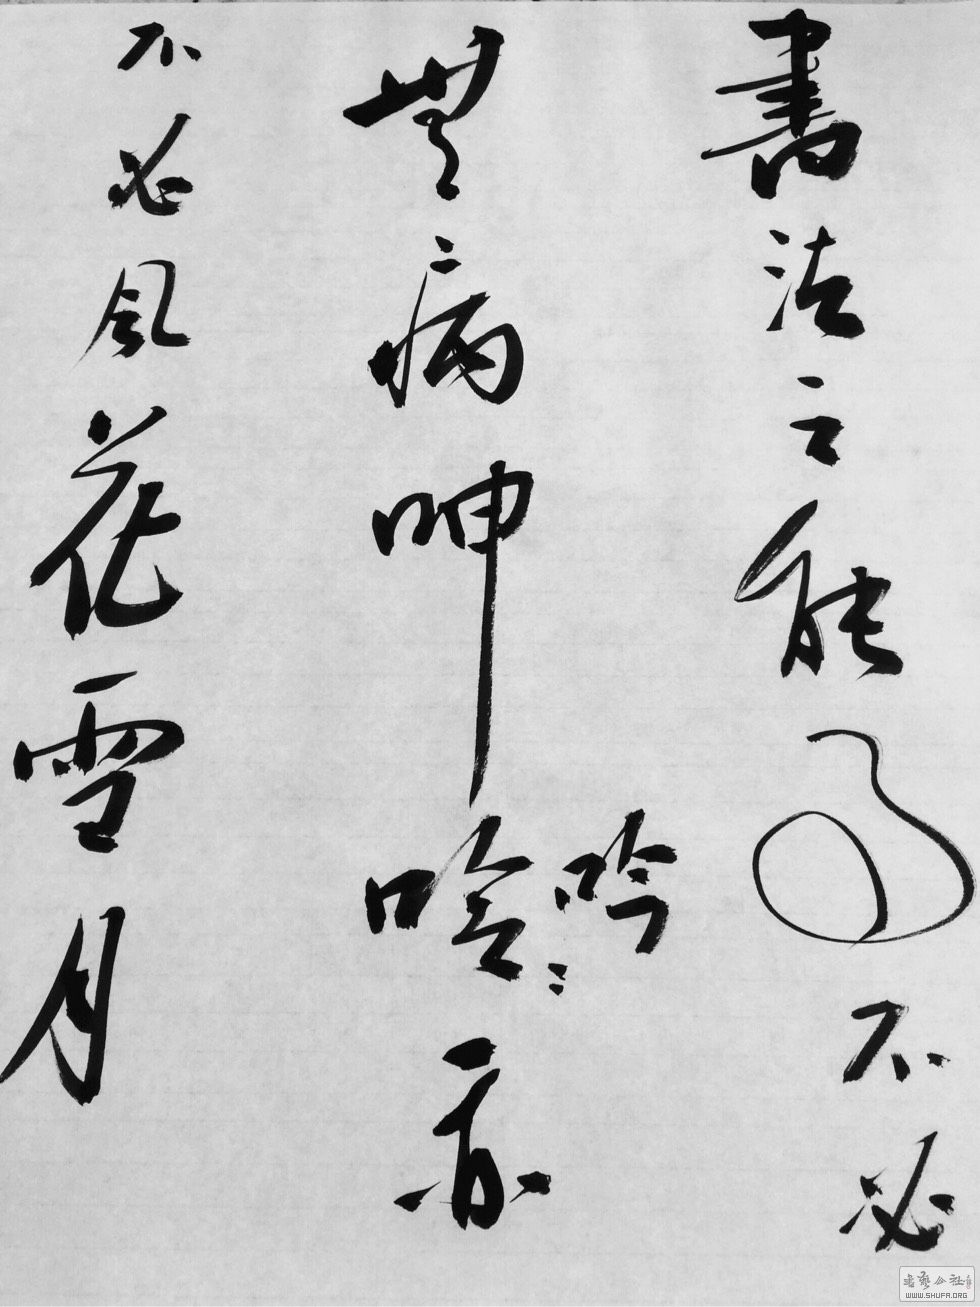 書法之能事不必
無病呻吟亦
不必風花雪月
書藝公社
WWW.SHUFA.ORG